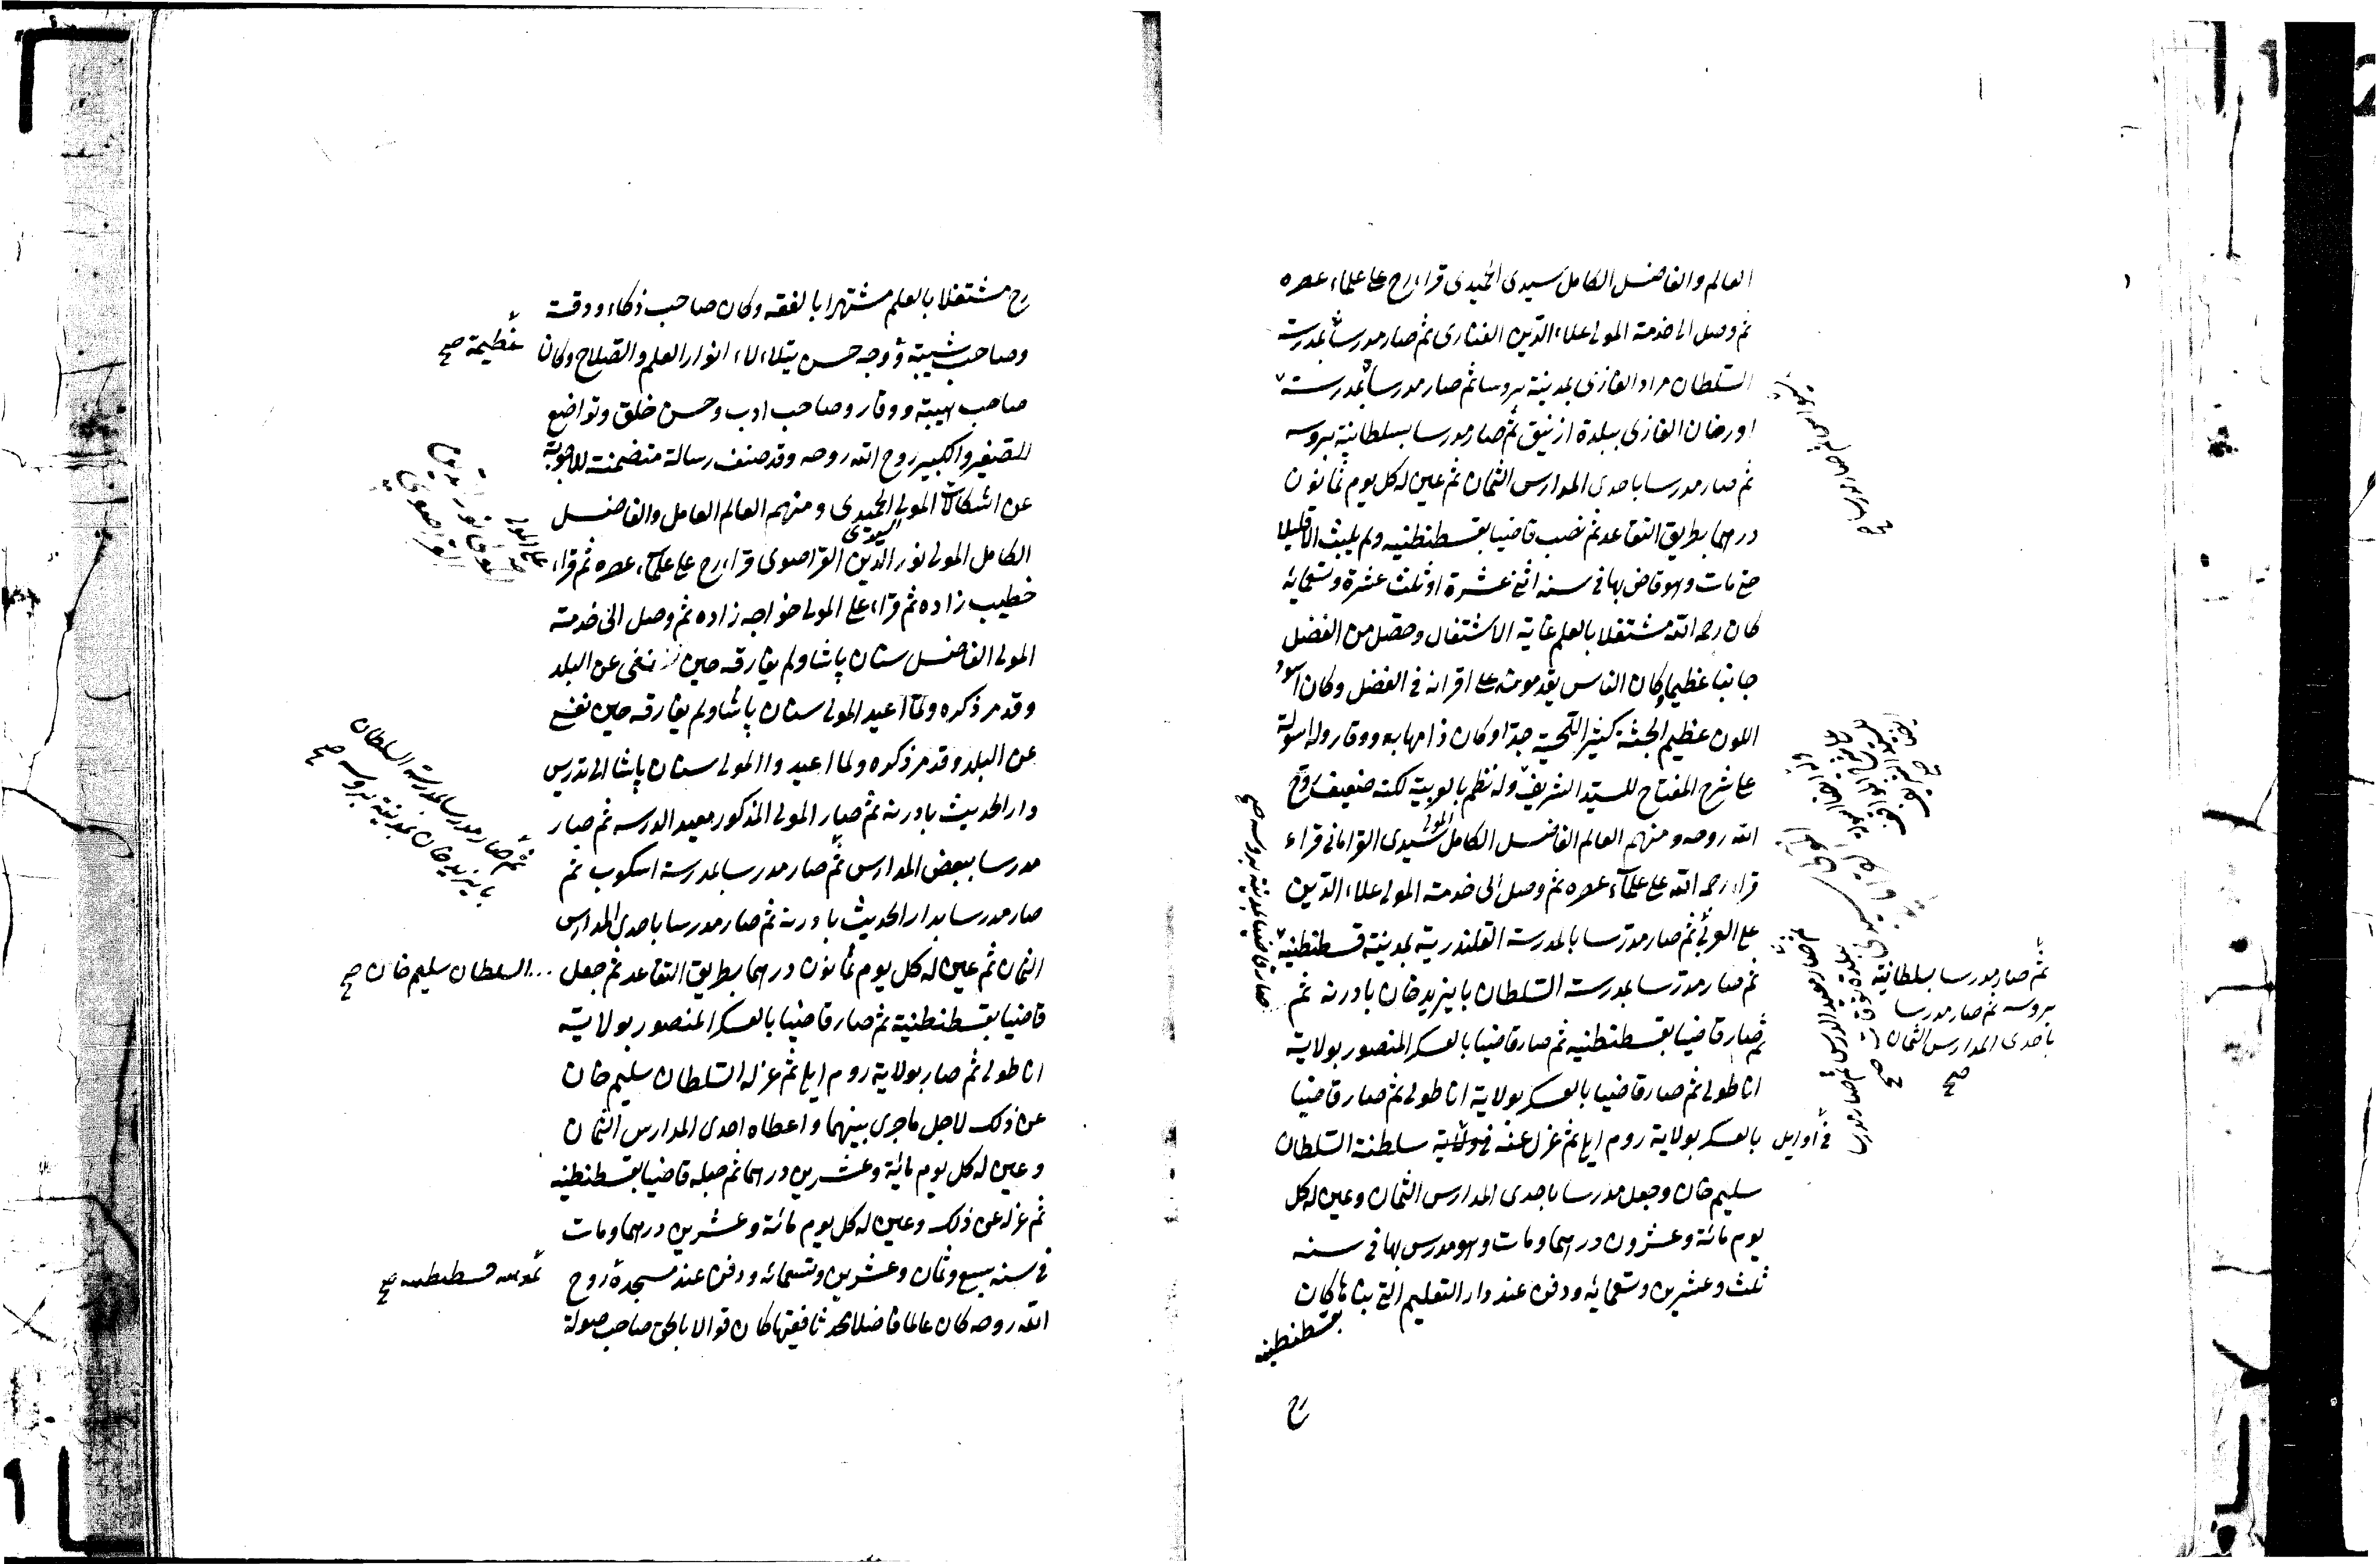 العالم والفاضل الكامل سيدى الحميدى قراء رح على علماء عصره
ثم وصل الى خدمة المولى علاء الدين الفنارى ثم صار مدرسا بمدرسة
السلطان مراد الغازى بمدينة بروسا ثم صار مدرسا بمدرسة
اورخان الغازى ببلدة ازنيق ثم صار مدرسا بسلطانية بروسه
ثم صار مدرسا باحدى المدارس الثمان ثم عين له كل يوم ثمانون
درهما بطريق التقاعد ثم نصب قاضيا بقسطنطنيه ولم يلبث الا قليلا
حتى مات وهو قاض بها فى سنه اثنى عشرة او ثلث عشرة وتسعمايه
كان رحمه الله مشتغلا بالعلم غاية الاشتغال وحصل من الفضل
جانبا عظيما وكان الناس يقدمونه على اقرانه فى الفضل وكان اسود
اللون عظيم الجثة كثير اللحية جدا وكان ذا مهابه ووقار وله اسولة
على شرح المفتاح للسيد الشريف وله نظم بالعربية لكنه ضعيف روح
الله روحه ومنهم العالم الفاضل الكامل المولى سيدى القرامانى قراء
قراء رحمه الله على علماء عصره ثم وصل الى خدمة المولى علاء الدين
على العربى ثم صار مدرسا بالمدرسة القلندرية بمدينة قسطنطنية
ثم صار مدرسا بمدرسة السلطان بايزيد خان بادرنه ثم
ثم صار قاضيا بقسطنطنيه ثم صار قاضيا بالعسكر المنصور بولاية
اناطولى ثم صار قاضيا بالعسكر بولاية اناطولى ثم صار قاضيا
بالعسكر بولاية روم ايلى ثم عزل عنه فى ولاية سلطنة السلطان
فى اوايل
سليم خان وجعل مدرسا باحدى المدارس الثمان وعين له كل
يوم مائة وعشرون درهما ومات وهو مدرس بها فى سنه
ثلث وعشرين وتسعمايه ودفن عند دار التعليم التى بناها كان
بقسطنطنيه
رح
ثم صار مدرسا بسلطانية
بروسه ثم صار مدرسا
باحدى المدارس الثمان
صح
صار قاضيا بمدينة بروسه صح
رح مشتغلا بالعلم مشتهرا بالفقه وكان صاحب ذكاء ودقت
وصاحب شيبة ووجه حسن يتلاءلاء انوار العلم والصلاح وكان
عظيمة صح
صاحب هيبة ووقار وصاحب ادب وحسن خلق وتواضع
للصغير والكبير روح الله روحه وقد صنف رسالة متضمنة للاجوبة
عن اشكالات المولى الحميدى ومنهم العالم العامل والفاضل
الكامل المولى نور الدين القراصوى قراء رح على علماء عصره ثم قراء
على المولى
خطيب زاده ثم قراء على المولى خواجه زاده ثم وصل الى خدمة
المولى الفاضل سنان پاشا ولم يفارقه حين نفى عن البلد
وقد مر ذكره ولما اعيد المولى سنان پاشا ولم يفارقه حين نفى
عن البلد وقد مر ذكره ولما اعيد والمولى سنان پاشا الى تدريس
دار الحديث بادرنه ثم صار المولى المذكور معيد الدرسه ثم صار
مدرسا ببعض المدارس ثم صار مدرسا بمدرسة اسكوب ثم
ثم صار مدرسا بمدرسة السلطان
بايزيد خان بمدينة بروسه صح
صار مدرسا بدار الحديث بادرنه ثم صار مدرسا باحدى المدارس
الثمان ثم عين له كل يوم ثمانون درهما بطريق التقاعد ثم جعل
السلطان سليم خان صح
قاضيا بقسطنطنية ثم صار قاضيا بالعسكر المنصور بولاية
اناطولى ثم صار بولاية روم ايلى ثم عزله السلطان سليم خان
عن ذلك لاجل ما جرى بينهما واعطاه احدى المدارس الثمان
وعين له كل يوم مائة وعشرين درهما ثم جعله قاضيا بقسطنطنيه
ثم عزله عن ذلك وعين له كل يوم مائة وعشرين درهما ومات
فى سنه سبع وثمان وعشرين وتسعمائه ودفن عند مسجده روح
بمدينة قسطنطنيه صح
الله روحه كان عالما فاضلا محدثا فقيها كان قوالا بالحق صاحب صولة